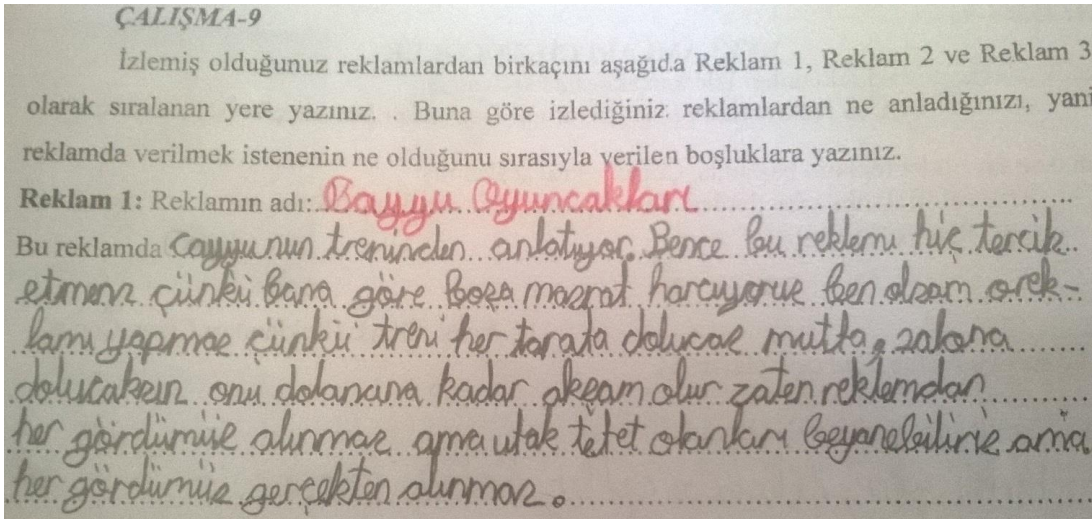 ÇALIŞMA-9
İzlemiş olduğunuz reklamlardan birkaçını aşağıda Reklam 1, Reklam 2 ve Reklam 3
olarak sıralanan yere yazınız. . Buna göre izlediğiniz reklamlardan ne anladığınızı, yani
reklamda verilmek istenenin ne olduğunu sırasıyla verilen boşluklara yazınız.
Reklam 1: Reklamın adı: Bayyu Oyuncakları
Bu reklamda Cayyunun treninden anlatıyor. Bence bu reklemı hiç tercik
etmem çünkü bana göre boşa masraf harcıyoruz ben olsam o rek-
lamı yapmaz çünkü treni her tarafa dolucak mutfa, salona
dolucaksın onu dolanana kadar akşam olur zaten reklemdan
her gördümüz alınmaz ama ufak tefek olanları beyanebiliriz ama
her gördümüz gerçekten alınmaz.